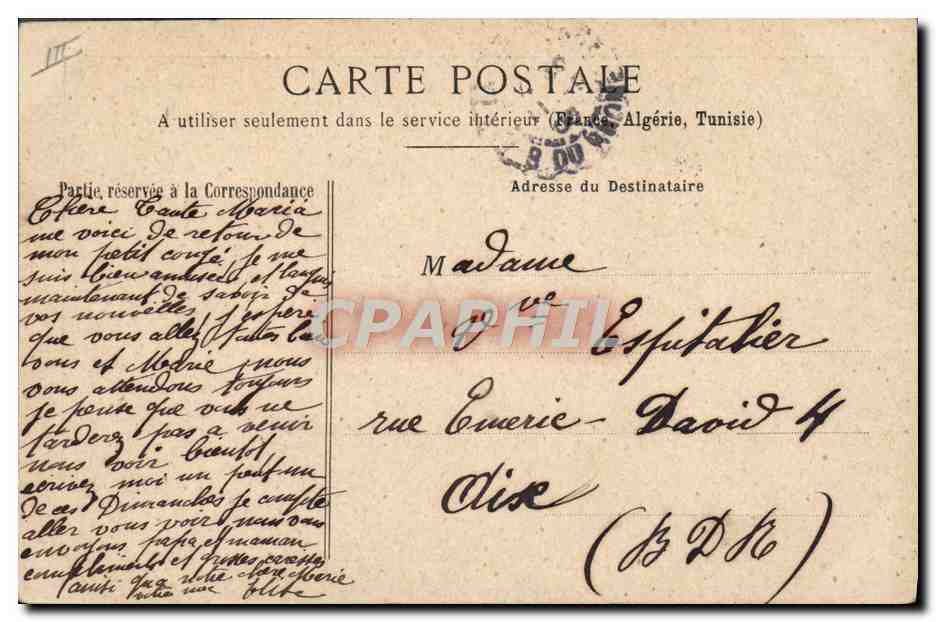 III
CARTE POSTALE
A utiliser seulement dans le service intérieur (France, Algérie, Tunisie)
B DU RHONE
Partie réservée à la Correspondance
Chère Tante Maria
me voici de retour de
mon petit congé, je me
suis bien amusée et
maintenant de savoir de
vos nouvelles, j'espère
que vous allez toutes bien
vous et Marie, nous
vous attendons toujours
je pense que vous ne
tarderez pas a venir
nous voir bientot,
ecrivez moi un petit mu
de ces Dimanches je compte
aller vous voir, nous vous
envoyons papa et maman
compliments et grosses caresses
ainsi qua notre chère Marie
votre
Adresse du Destinataire
Madame
Vve Espitalier
rue Emeric-David 4
Aix
(B D R)
CPAPHIL